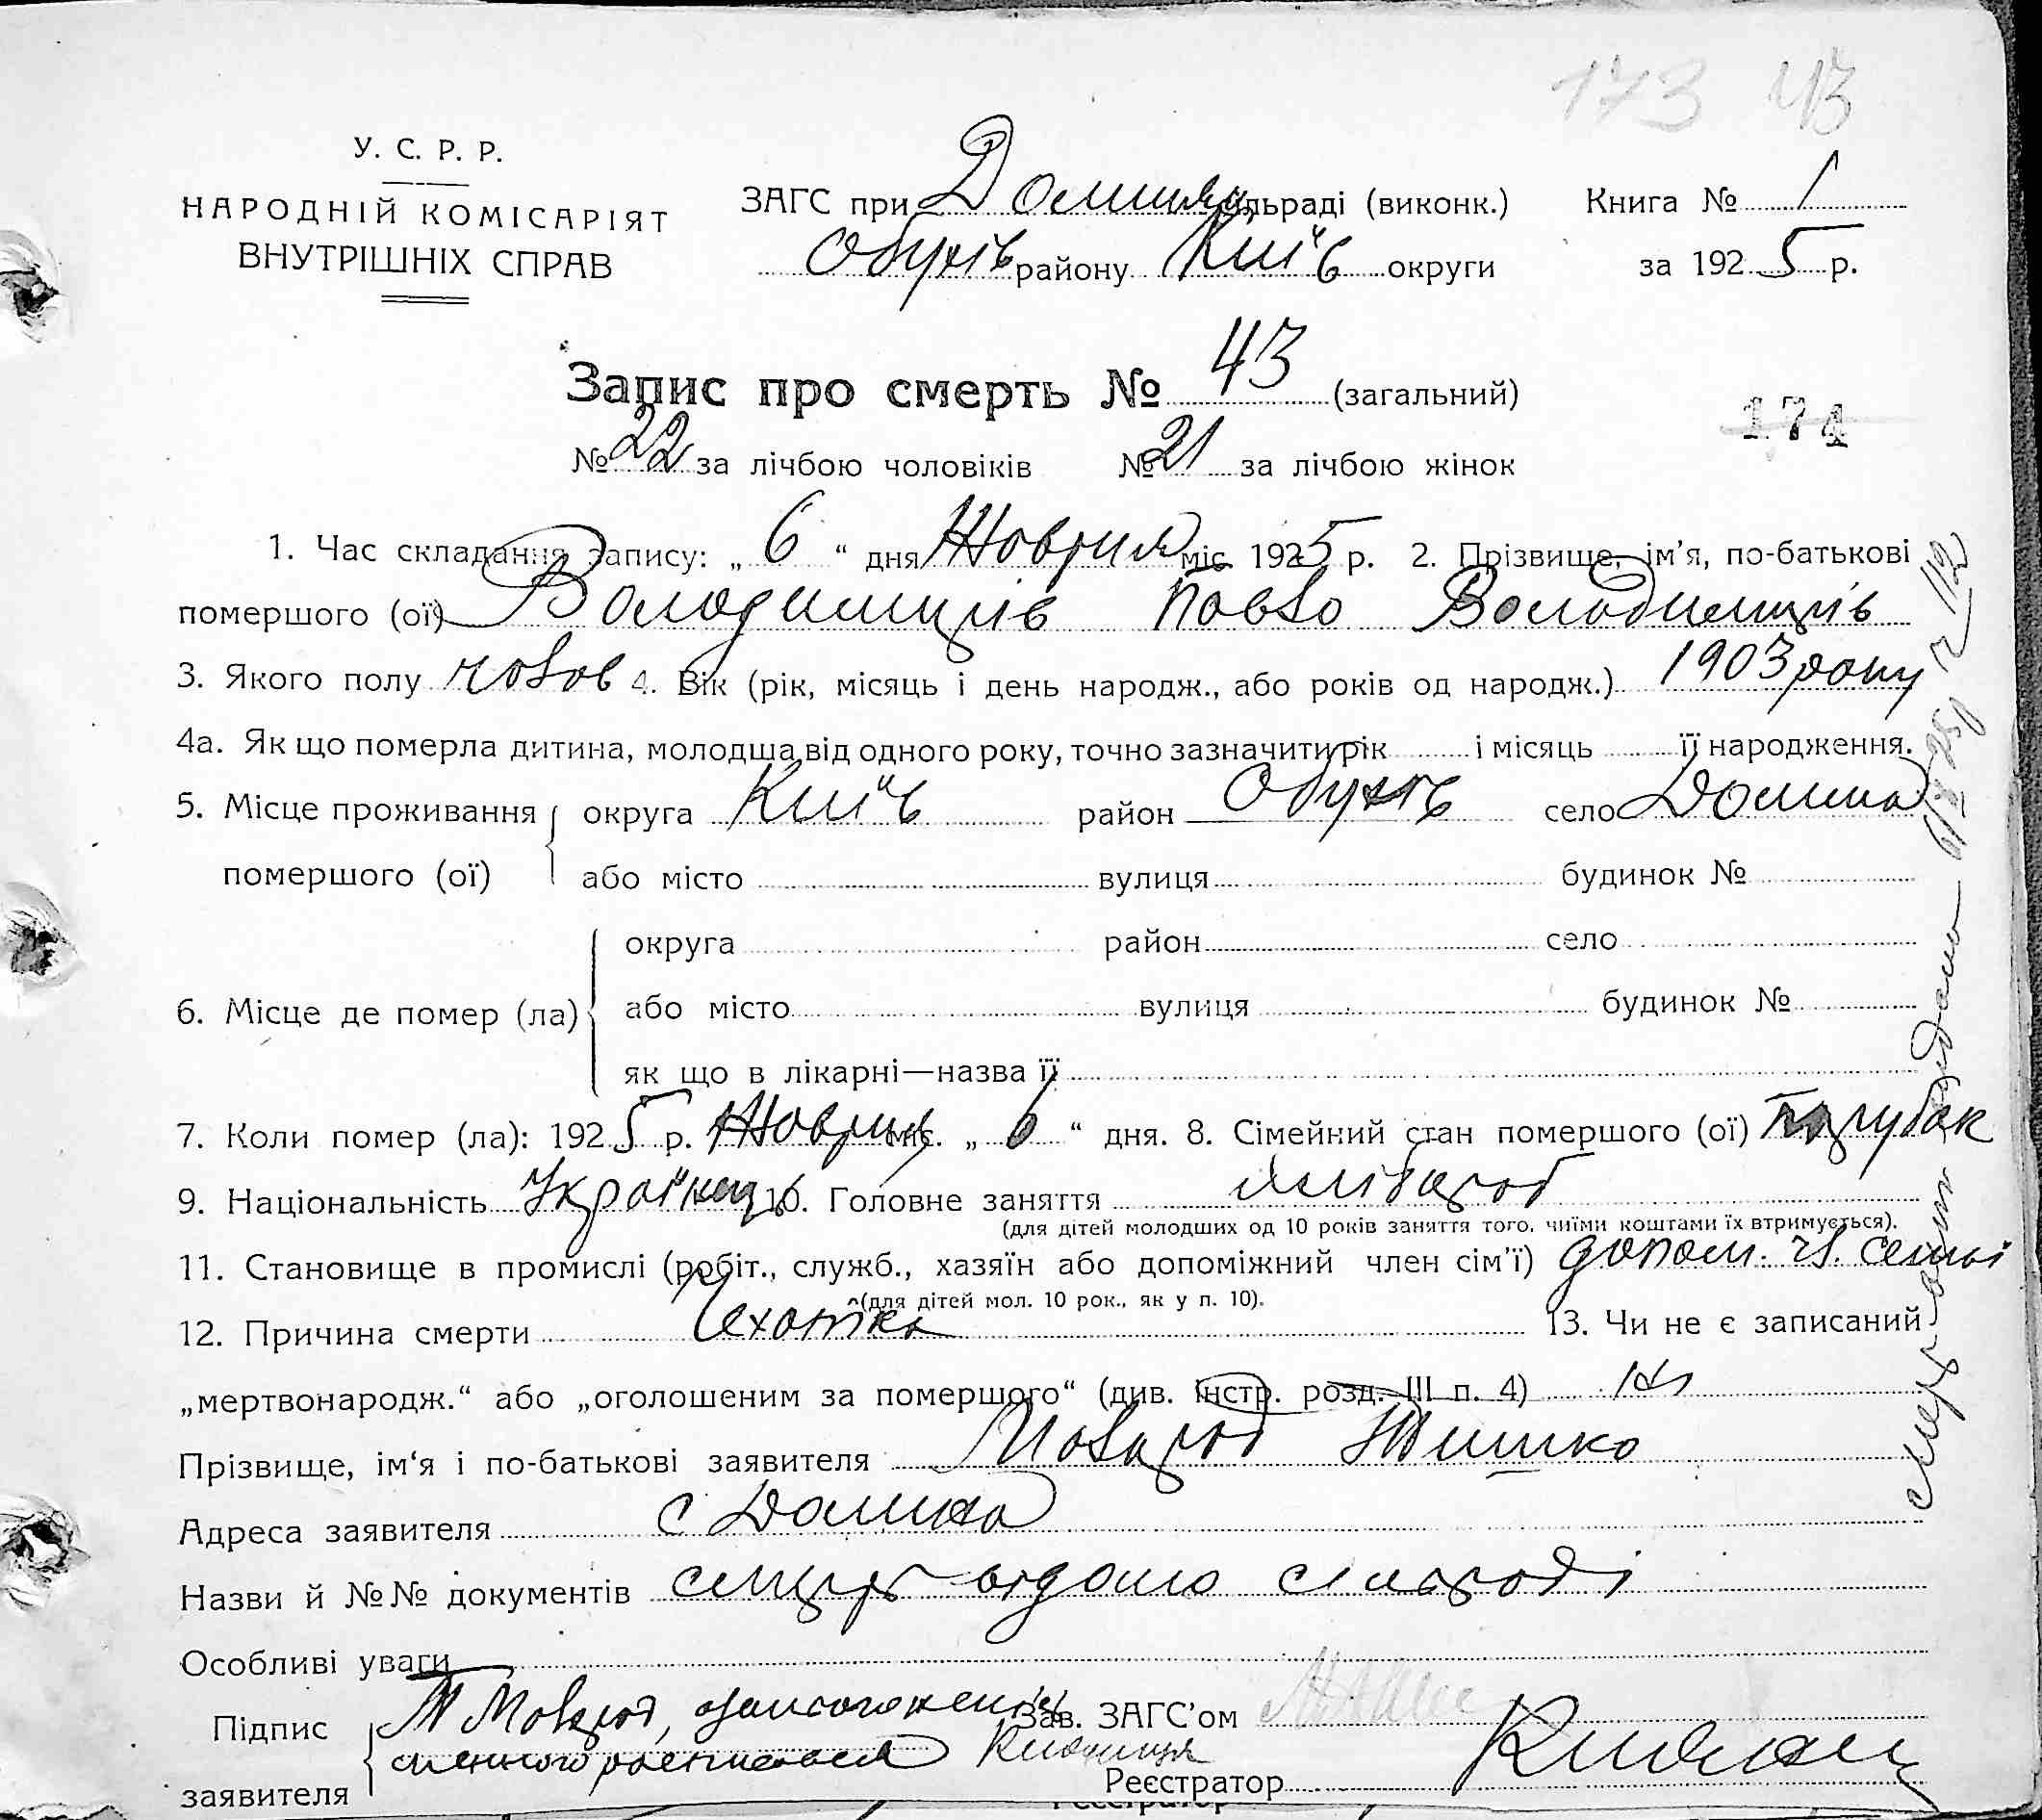 173 43
У. С. Р. Р.
НАРОДНІЙ КОМІСАРІЯТ
ВНУТРІШНІХ СПРАВ
ЗАГС при Долинян. сільраді (виконк.) Книга № 1
Обухів району Київ округи за 1925 р.
Запис про смерть № 43 (загальний)
174
№ 22 за лічбою чоловіків № 21 за лічбою жінок
1. Час складання запису: „ 6 “ дня Жовтня міс. 1925 р. 2. Прізвище, ім’я, по-батькові
помершого (ої) Володимирів Павло Володимирів
3. Якого полу чолов 4. Вік (рік, місяць і день народж., або років од народж.) 1903 року
4а. Як що померла дитина, молодша від одного року, точно зазначити рік і місяць її народження.
5. Місце проживання округа Київ район Обухів село Долина
помершого (ої) або місто вулиця будинок №
округа район село
6. Місце де помер (ла) або місто вулиця будинок №
як що в лікарні—назва її
7. Коли помер (ла): 1925 р. Жовтня міс. „ 6 “ дня. 8. Сімейний стан помершого (ої) парубок
9. Національність Українець 10. Головне заняття хлібороб
(для дітей молодших од 10 років заняття того, чиїми коштами їх втримується).
11. Становище в промислі (робіт., служб., хазяїн або допоміжний член сім’ї) допом. чл. семьі
(для дітей мол. 10 рок., як у п. 10).
12. Причина смерти Чехотка 13. Чи не є записаний
„мертвонародж.“ або „оголошеним за помершого“ (див. інстр. розд. III п. 4) ні
Прізвище, ім‘я і по-батькові заявителя
Адреса заявителя с Долина
Назви й №№ документів смерть відома сільраді
Особливі уваги
Підпис Зав. ЗАГС’ом
заявителя Реєстратор